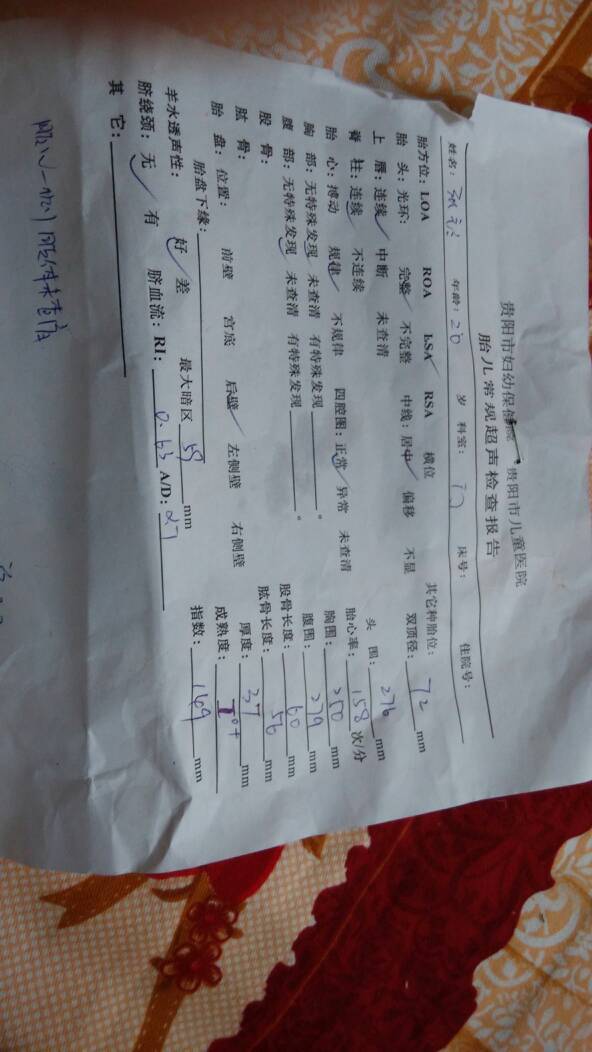 贵阳市妇幼保健院 贵阳市儿童医院
胎儿常规超声检查报告
姓名: 年龄: 20 岁 科室: 门 床号: 住院号:
胎方位: LOA ROA LSA✓ RSA 横位 其它种胎位:
胎头: 光环: 完整✓ 不完整 中线: 居中✓ 偏移 不显 双顶径: 72 mm
上唇: 连续✓ 中断 未查清 头围: 276 mm
脊柱: 连续✓ 不连续 胎心率: 158 次/分
胎心: 搏动 规律✓ 不规律 四腔图: 正常✓ 异常 未查清 胸围: 250 mm
胸部: 无特殊发现✓ 未查清 有特殊发现 。 腹围: 279 mm
腹部: 无特殊发现✓ 未查清 有特殊发现 。 股骨长度: 60 mm
股骨: 肱骨长度: 56 mm
肱骨: 厚度: 37 mm
胎盘: 位置: 前壁 宫底 后壁✓ 左侧壁 右侧壁 成熟度: I°+
胎盘下缘: 指数: 169 mm
羊水透声性: 好✓ 差 最大暗区 59 mm
脐绕颈: 无✓ 有 脐血流: RI: 0.63 A/D: 2.7
其它: